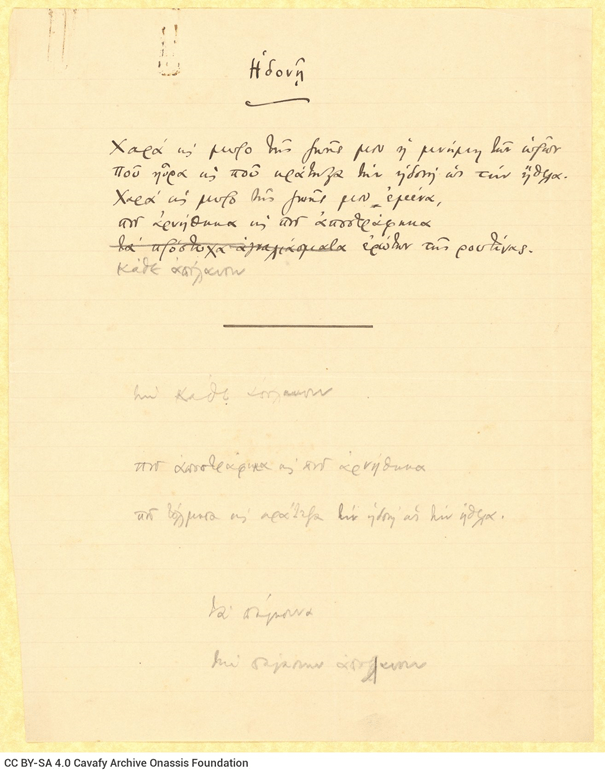 Ηδονῇ
Χαρά κ̣ι μύρο της ζωής μου η μνήμη των ωρών
που ηύρα κι που κράτηξα την ηδονή ως την ήθελα.
Χαρά κι μύρο της ζωής μου εμένα,
που αρνήθηκα κι που αποστράφηκα
τα πρόστυχα αγκαλιάσματα ερώτων της ρουτίνας.
Κάθε απόλαυσιν
την κάθε απόλαυσιν
που αποστράφηκα κι που αρνήθηκα
που τόλμησα κι κράτηξα την ηδονή ως την ήθελα.
τα
την απόλαυσιν
CC BY-SA 4.0 Cavafy Archive Onassis Foundation